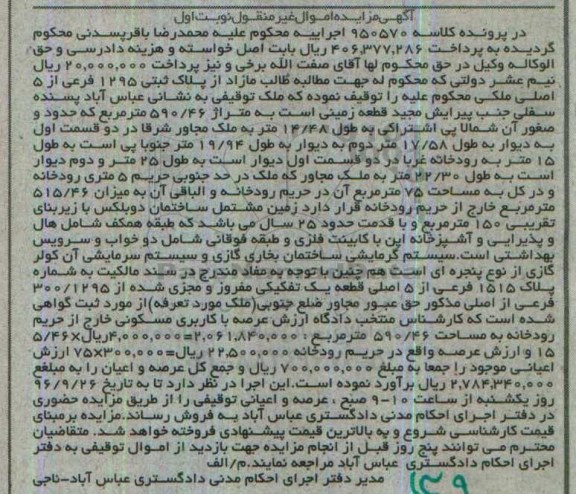 آگهی مزایده اموال غیر منقول نوبت اول
در پرونده کلاسه ۹۵۰۵۷۰ اجراییه محکوم علیه محمدرضا باقرپسدنی محکوم
گردیده به پرداخت ۴۰۶,۳۷۷,۲۸۶ ریال بابت اصل خواسته و هزینه دادرسی و حق
الوکاله وکیل در حق محکوم لها آقای صفت الله برخی و نیز پرداخت ۲۰,۰۰۰,۰۰۰ ریال
نیم عشر دولتی که محکوم له جهت مطالبه طالب مازاد از پلاک ثبتی ۱۲۹۵ فرعی از ۵
اصلی ملکی محکوم علیه را توقیف نموده که ملک توقیفی به نشانی عباس آباد پسنده
سفلی جنب پیرایش مجید قطعه زمینی است به متراژ ۵۹۰/۴۶ مترمربع که حدود و
صغور آن شمالا پی اشتراکی به طول ۱۴/۴۸ متر به ملک مجاور شرقا در دو قسمت اول
به دیوار به طول ۱۷/۵۸ متر دوم به دیوار به طول ۱۹/۹۴ متر جنوبا پی است به طول
۱۵ متر به رودخانه غربا در دو قسمت اول دیوار است به طول ۲۵ متر و دوم دیوار
است به طول ۲۲/۳۰ متر به ملک مجاور که ملک در حد جنوبی حریم ۵ متری رودخانه
و در کل به مساحت ۷۵ مترمربع آن در حریم رودخانه و الباقی آن به میزان ۵۱۵/۴۶
مترمربع خارج از حریم رودخانه قرار دارد زمین مشتمل ساختمان دوبلکس با زیربنای
تقریبی ۱۵۰ مترمربع و با قدمت حدود ۲۵ سال می باشد که طبقه همکف شامل هال
و پذیرایی و آشپزخانه اپن با کابینت فلزی و طبقه فوقانی شامل دو خواب و سرویس
بهداشتی است.سیستم گرمایشی ساختمان بخاری گازی و سیستم سرمایشی آن کولر
گازی از نوع پنجره ای است هم چنین با توجه به مفاد مندرج در سند مالکیت به شماره
پلاک ۱۵۱۵ فرعی از ۵ اصلی قطعه یک تفکیکی مفروز و مجزی شده از ۳۰۰/۱۲۹۵
فرعی از اصلی مذکور حق عبور مجاور ضلع جنوبی(ملک مورد تعرفه)از مورد ثبت گواهی
شده است که کارشناس منتخب دادگاه ارزش عرصه با کاربری مسکونی خارج از حریم
رودخانه به مساحت ۵۹۰/۴۶ مترمربع : ۲,۰۶۱,۸۴۰,۰۰۰=۴,۰۰۰,۰۰۰ریال×۵/۴۶
۱۵ و ارزش عرصه واقع در حریم رودخانه ۲۲,۵۰۰,۰۰۰ ریال=۳۰۰,۰۰۰×۷۵ ارزش
اعیانی موجود را جمعا به مبلغ ۷۰۰,۰۰۰,۰۰۰ ریال و جمع کل عرصه و اعیان را به مبلغغ
۲,۷۸۴,۳۴۰,۰۰۰ ریال برآورد نموده است.این اجرا در نظر دارد تا به تاریخ ۹۶/۹/۲۶
روز یکشنبه از ساعت ۱۰-۹ صبح ، عرصه و اعیانی توقیفی را از طریق مزایده حضوری
در دفتر اجرای احکام مدنی دادگستری عباس آباد به فروش رساند.مزایده برمبنای
قیمت کارشناسی شروع و به بالاترین قیمت پیشنهادی فروخته خواهد شد. متقاضیان
محترم می توانند پنج روز قبل از انجام مزایده جهت بازدید از اموال توقیفی به دفتر
اجرای احکام دادگستری عباس آباد مراجعه نمایند.م/الف
مدیر دفتر اجرای احکام مدنی دادگستری عباس آباد-ناجی